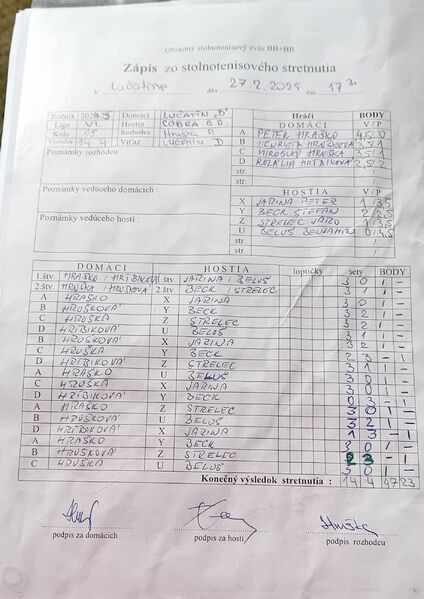 Oblastný stolnotenisový zväz BB+BR
Zápis zo stolnotenisového stretnutia
v Lučatíne dňa 27.2.2025 čas 17
Ročník Domáci LUČATÍN "D" Hráči BODY
Liga VI. Hostia COBRA BB D DOMÁCI V / P
Kolo 15 Rozhodca Hruška A PETER HRAŠKO 4,5 0
Výsledok 14 4 Víťaz LUČATÍN D B HENRIETA HRUŠKOVÁ 3,5 1
Poznámky rozhodcu : C MIROSLAV HRUŠKA
D ROZÁLIA HRÍBIKOVÁ 2,5 2
str.
str.
Poznámky vedúceho domácich : HOSTIA V / P
X JARINA PETER 1 3,5
Y BECK ŠTEFAN 2
Poznámky vedúceho hostí : Z STRELEC JARO
U BELUŠ BENJAMÍN 0 4,5
str.
str.
DOMÁCI HOSTIA loptičky sety BODY
1.štv. HRAŠKO / HRÍBIKOVÁ 1.štv. JARINA / BELUŠ 3 0 1 –
2.štv. HRUŠKA / HRUŠKOVÁ 2.štv. BECK / STRELEC 3 1 1 –
A HRAŠKO X JARINA 3 0 1 –
B HRUŠKOVÁ Y BECK 3 2 1 –
C HRUŠKA Z STRELEC 3 2 1 –
D HRÍBIKOVÁ U BELUŠ 3 1 1 –
B HRUŠKOVÁ X JARINA 3 1 1 –
C HRUŠKA Y BECK 2 3 – 1
D HRÍBIKOVÁ Z STRELEC 3 1 1 –
A HRAŠKO U BELUŠ 3 0 1 –
C HRUŠKA X JARINA 3 0 1 –
D HRÍBIKOVÁ Y BECK 0 3 – 1
A HRAŠKO Z STRELEC 3 0 1 –
B HRUŠKOVÁ U BELUŠ 3 2 1 –
D HRÍBIKOVÁ X JARINA 1 3 – 1
A HRAŠKO Y BECK 3 0 1 –
B HRUŠKOVÁ Z STRELEC 2 3 – 1
C HRUŠKA U BELUŠ 3 0 1 –
Konečný výsledok stretnutia : 14 4 47 23
Hruška
podpis za domácich podpis za hostí podpis rozhodcu